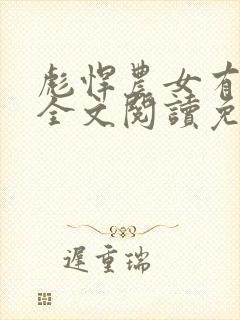 彪悍農女有
全文閱讀免
遲重瑞